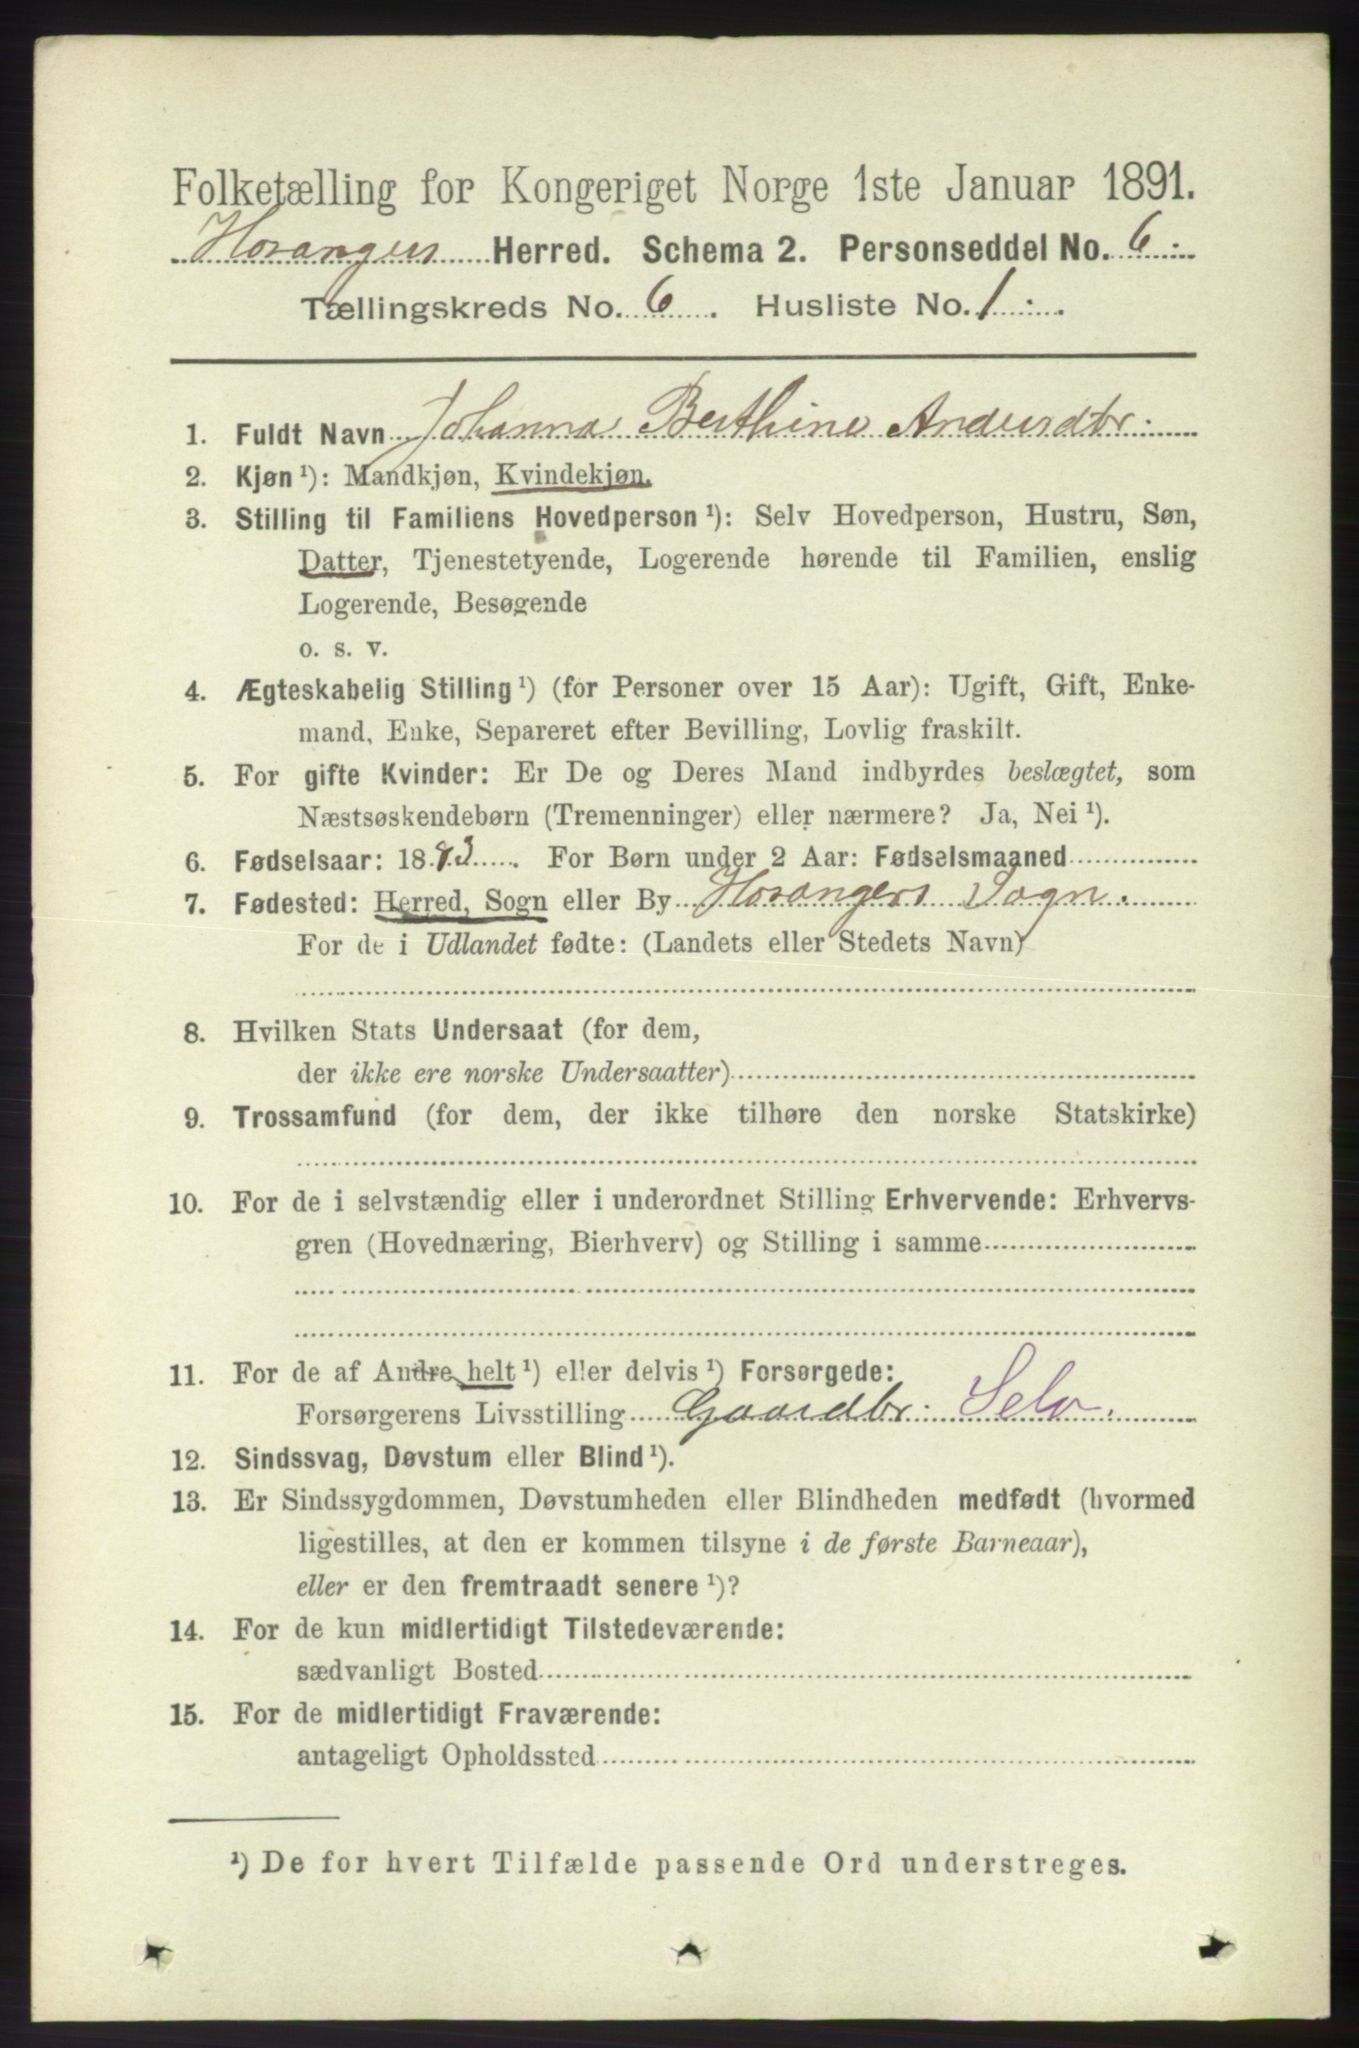 Folketælling for Kongeriget Norge 1ste Januar 1891.
Hosangers Herred. Schema 2. Personseddel No. 6.
Tællingskreds No. 6. Husliste No. 1.
1. Fuldt Navn Johanna Berthine Andersdtr.
2. Kjøn ¹): Mandkjøn, Kvindekjøn.
3. Stilling til Familiens Hovedperson ¹): Selv Hovedperson, Hustru, Søn,
Datter, Tjenestetyende, Logerende hørende til Familien, enslig
Logerende, Besøgende
o. s. v.
4. Ægteskabelig Stilling ¹) (for Personer over 15 Aar): Ugift, Gift, Enke-
mand, Enke, Separeret efter Bevilling, Lovlig fraskilt.
5. For gifte Kvinder: Er De og Deres Mand indbyrdes beslægtet, som
Næstsøskendebørn (Tremenninger) eller nærmere? Ja, Nei ¹).
6. Fødselsaar: 1883. For Børn under 2 Aar: Fødselsmaaned
7. Fødested: Herred, Sogn eller By Hosangers Sogn.
For de i Udlandet fødte: (Landets eller Stedets Navn)
8. Hvilken Stats Undersaat (for dem,
der ikke ere norske Undersaatter)
9. Trossamfund (for dem, der ikke tilhøre den norske Statskirke)
10. For de i selvstændig eller i underordnet Stilling Erhvervende: Erhvervs-
gren (Hovednæring, Bierhverv) og Stilling i samme
11. For de af Andre helt ¹) eller delvis ¹) Forsørgede:
Forsørgerens Livsstilling Gaardbr. Selv.
12. Sindssvag, Døvstum eller Blind ¹).
13. Er Sindssygdommen, Døvstumheden eller Blindheden medfødt (hvormed
ligestilles, at den er kommen tilsyne i de første Barneaar),
eller er den fremtraadt senere ¹)?
14. For de kun midlertidigt Tilstedeværende:
sædvanligt Bosted
15. For de midlertidigt Fraværende:
antageligt Opholdssted
¹) De for hvert Tilfælde passende Ord understreges.